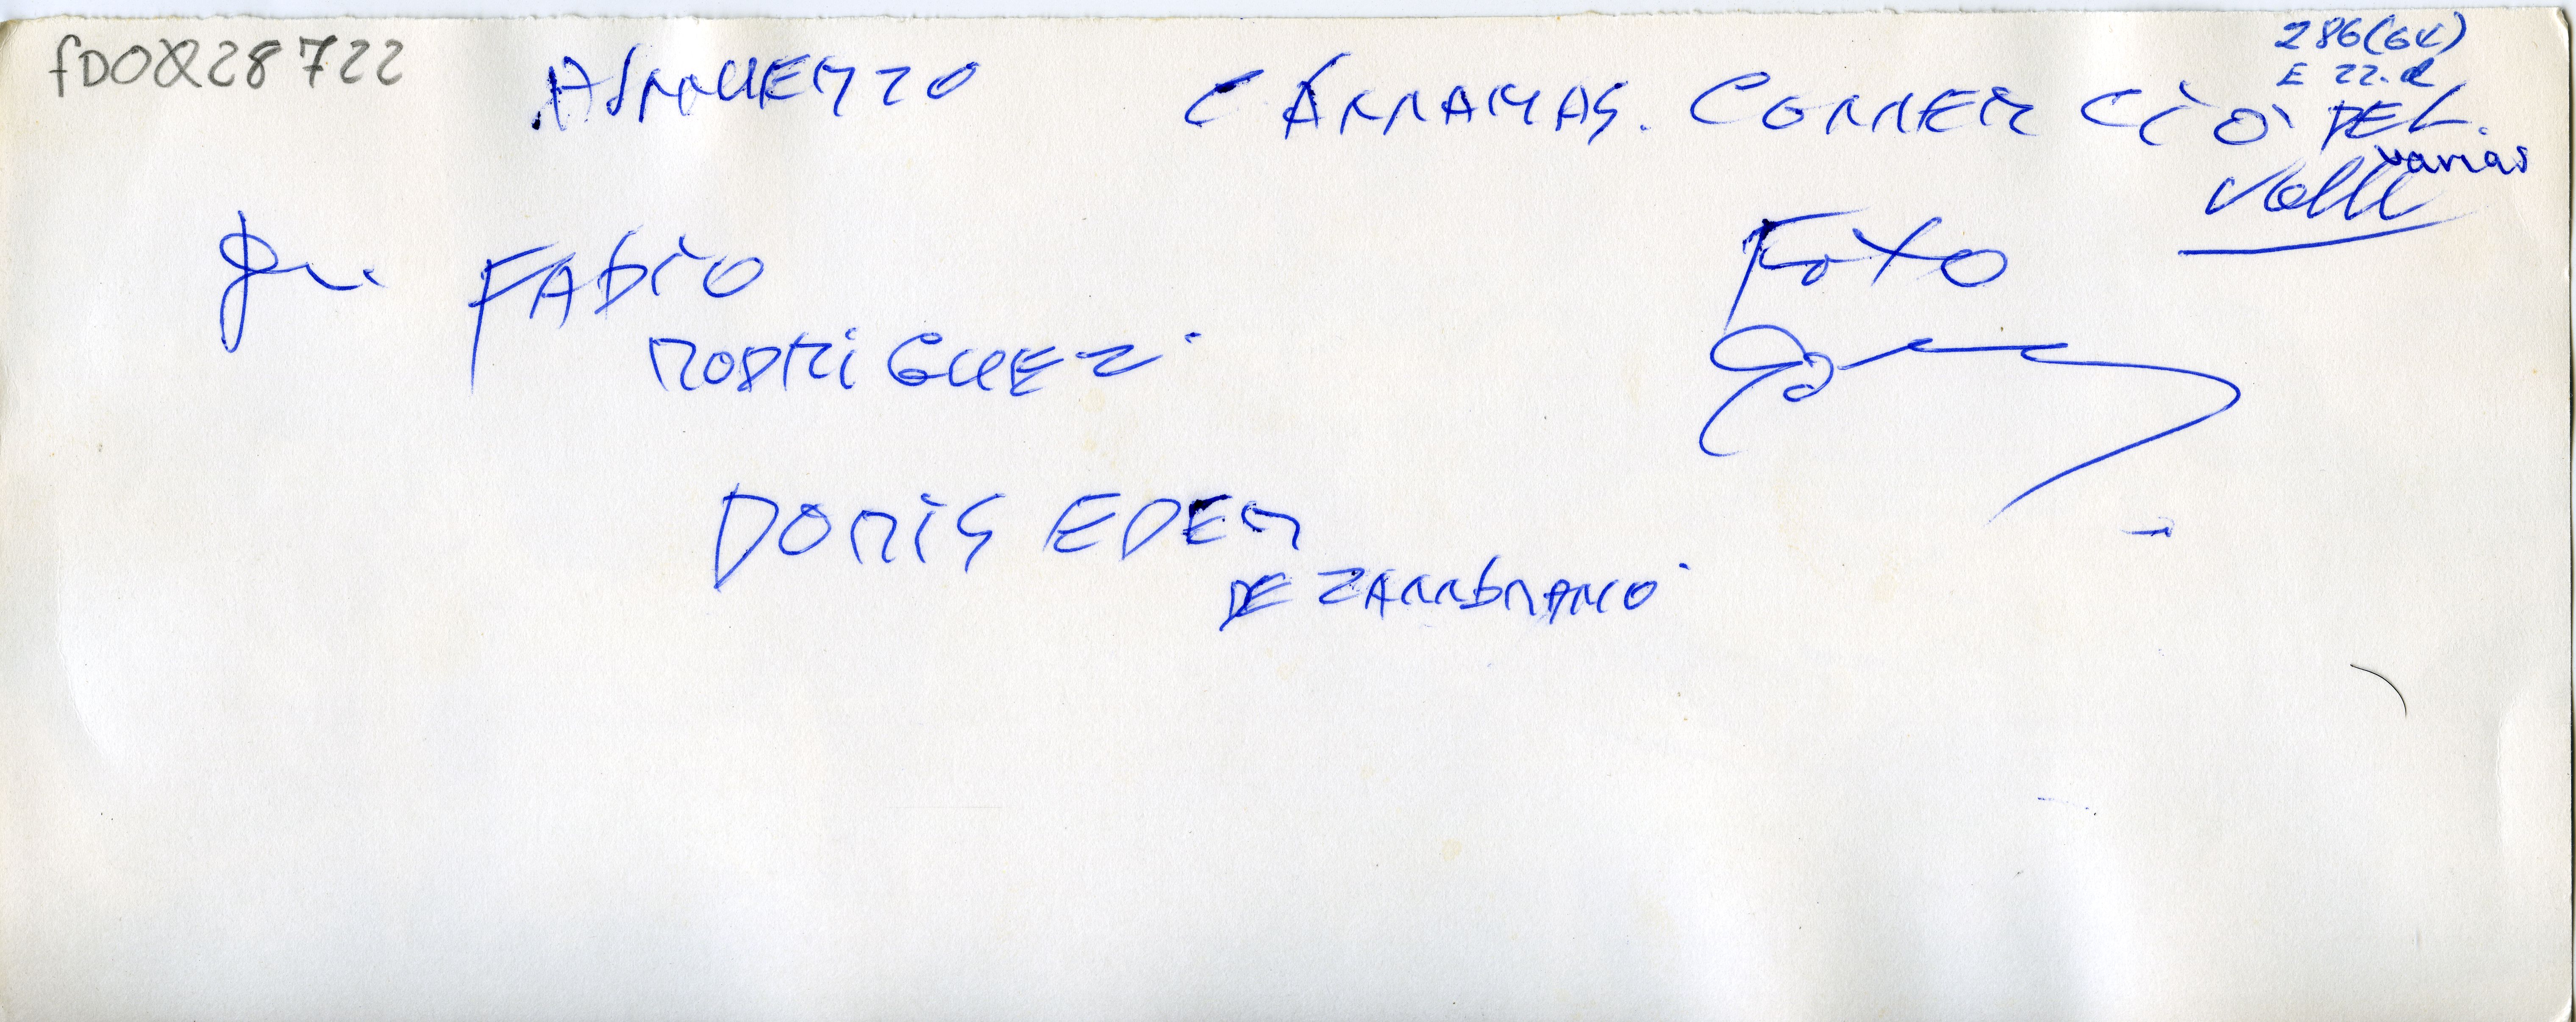 fDOQ28722
286(64)
E 22.
ALMUERZO CÁMARAS. COMERCIO DEL.
varias
Valle
FABIO
RODRIGUEZ
Foto
DORIS EDER
DE ZAMBRANO